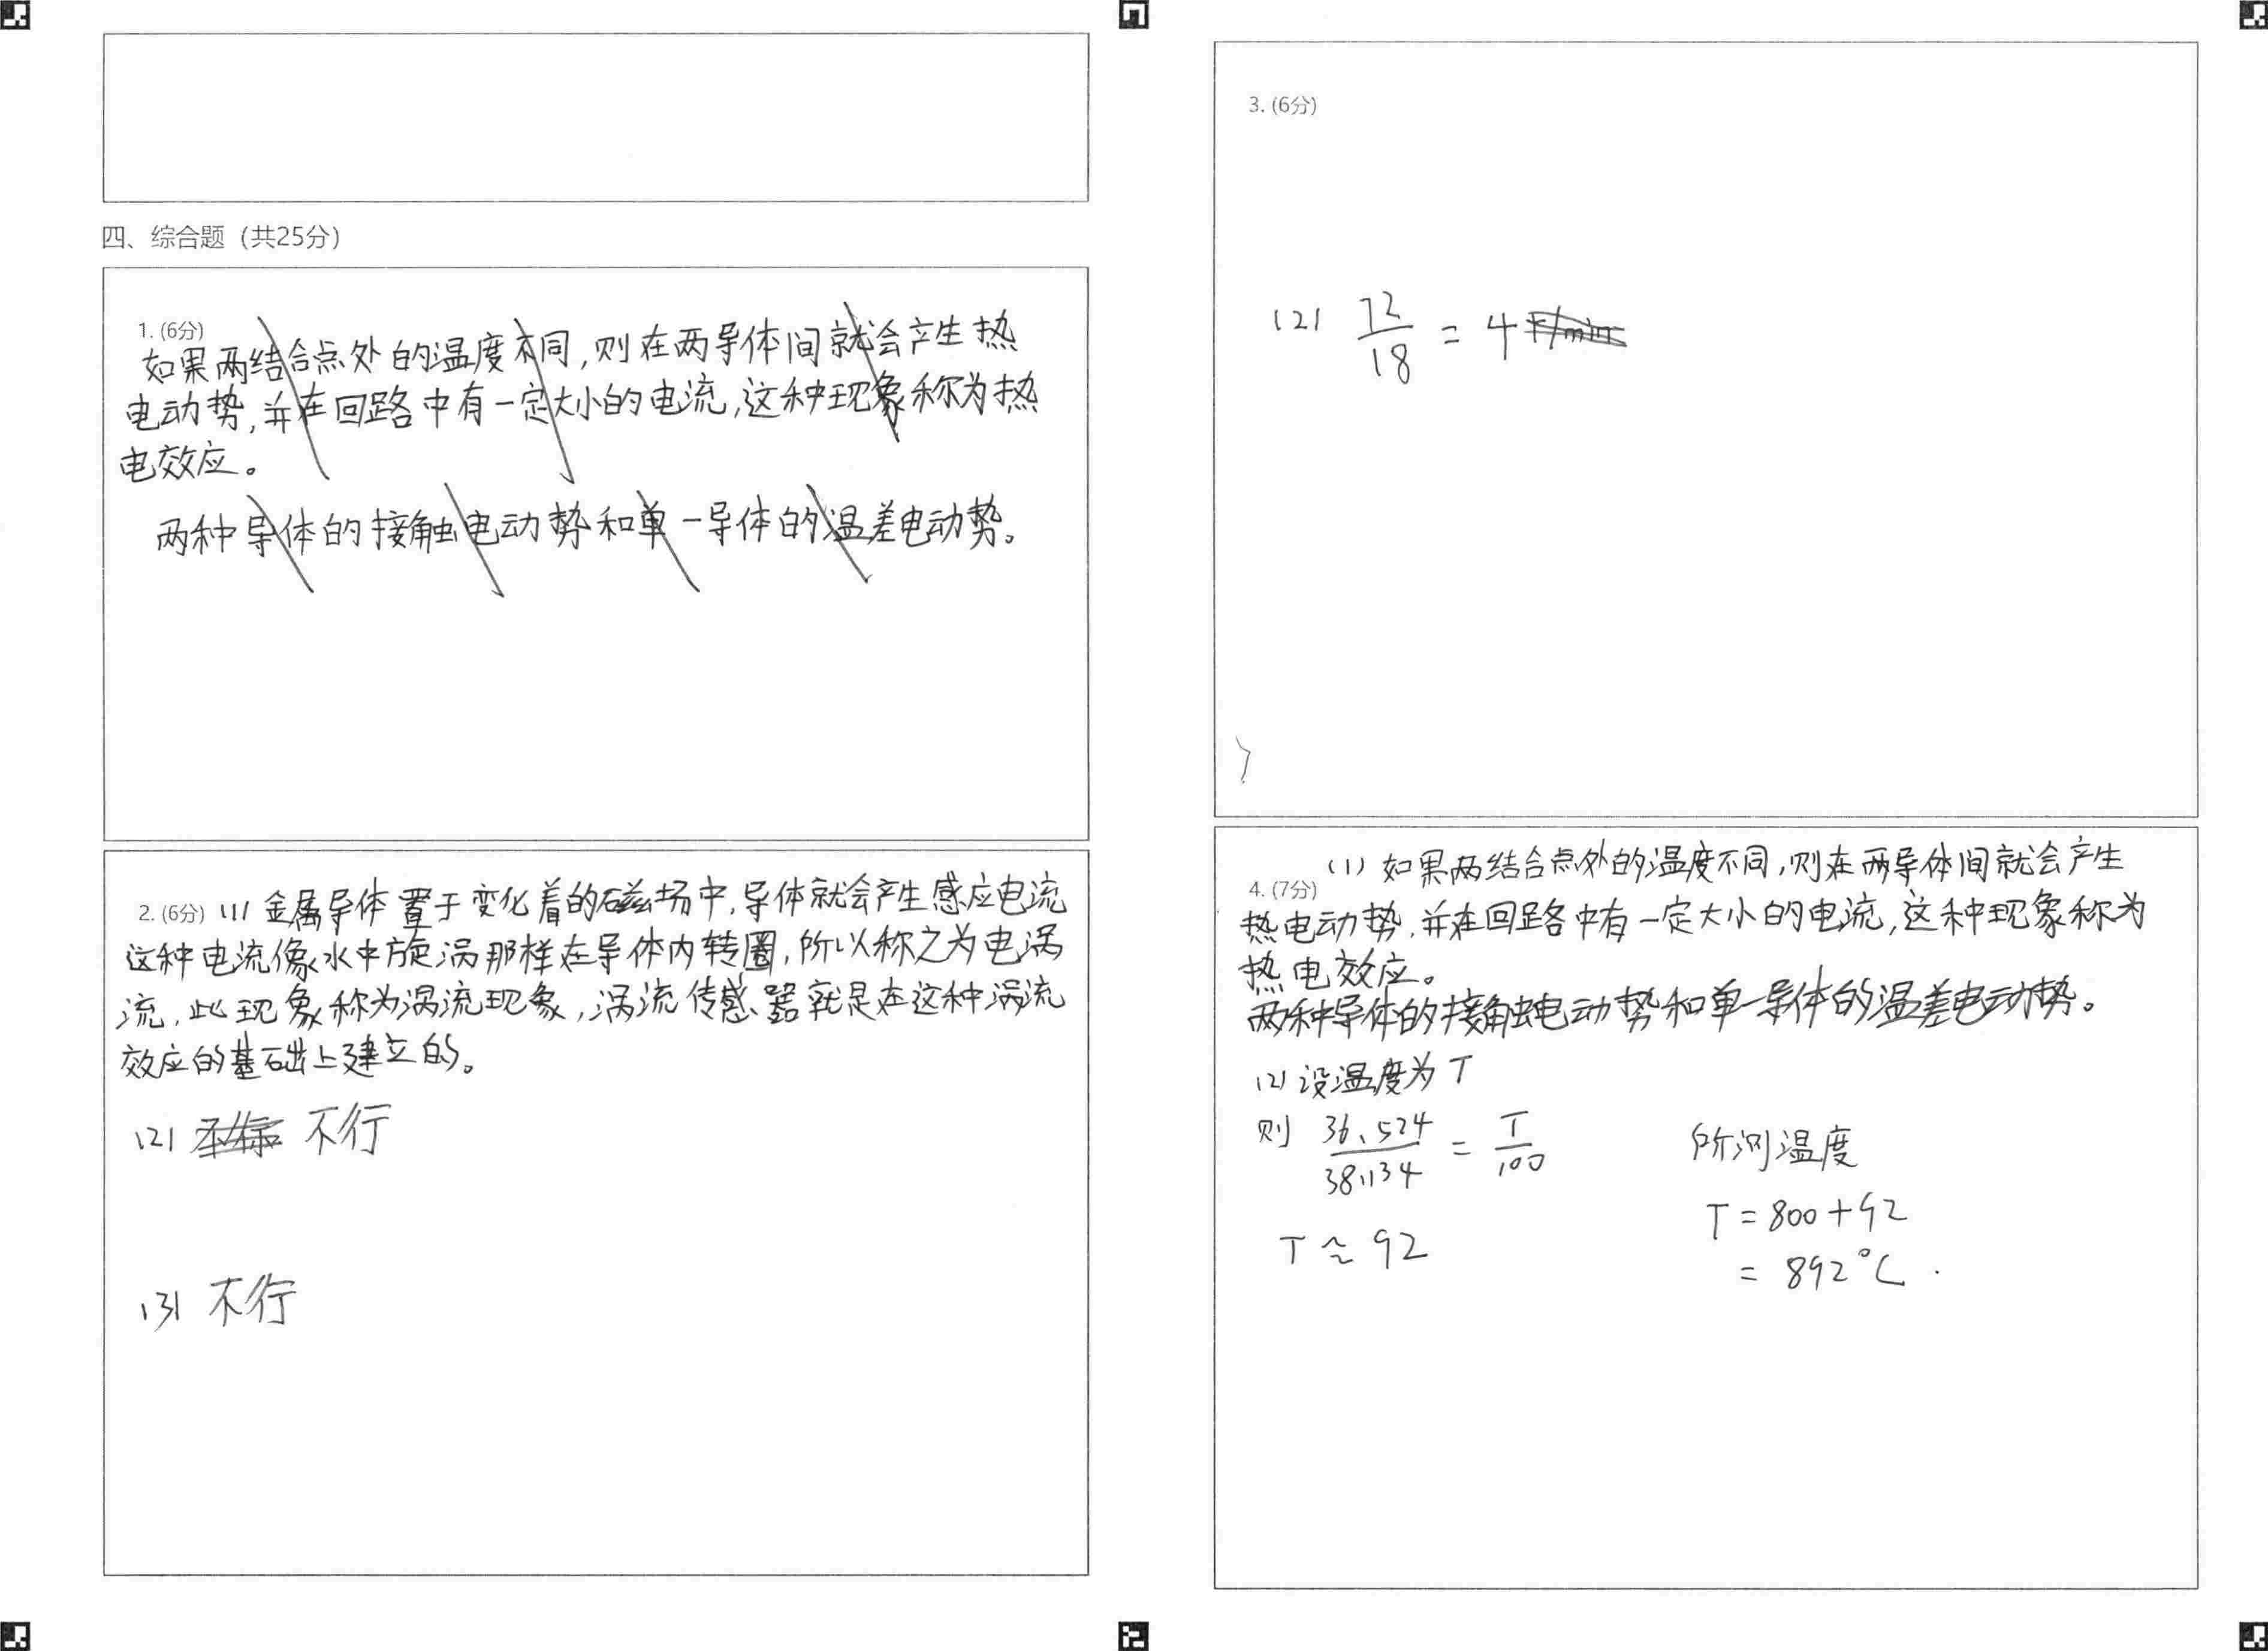 四、综合题（共25分）
1. (6分)
如果两结合点处的温度不同,则在两导体间就会产生热
电动势,并在回路中有一定大小的电流,这种现象称为热
电效应。
两种导体的接触电动势和单一导体的温差电动势。
2. (6分) (1) 金属导体置于变化着的磁场中,导体就会产生感应电流
这种电流像水中旋涡那样在导体内转圈,所以称之为电涡
流,此现象称为涡流现象,涡流传感器就是在这种涡流
效应的基础上建立的。
(2) 不行
(3) 不行
3. (6分)
(2) 72/18 = 4 r/min
4. (7分)
(1) 如果两结合点处的温度不同,则在两导体间就会产生
热电动势,并在回路中有一定大小的电流,这种现象称为
热电效应。
两种导体的接触电动势和单一导体的温差电动势。
(2) 设温度为T
则 36.524/38.134 = T/100
T ≈ 92
所测温度
T = 800 + 92
= 892°C.